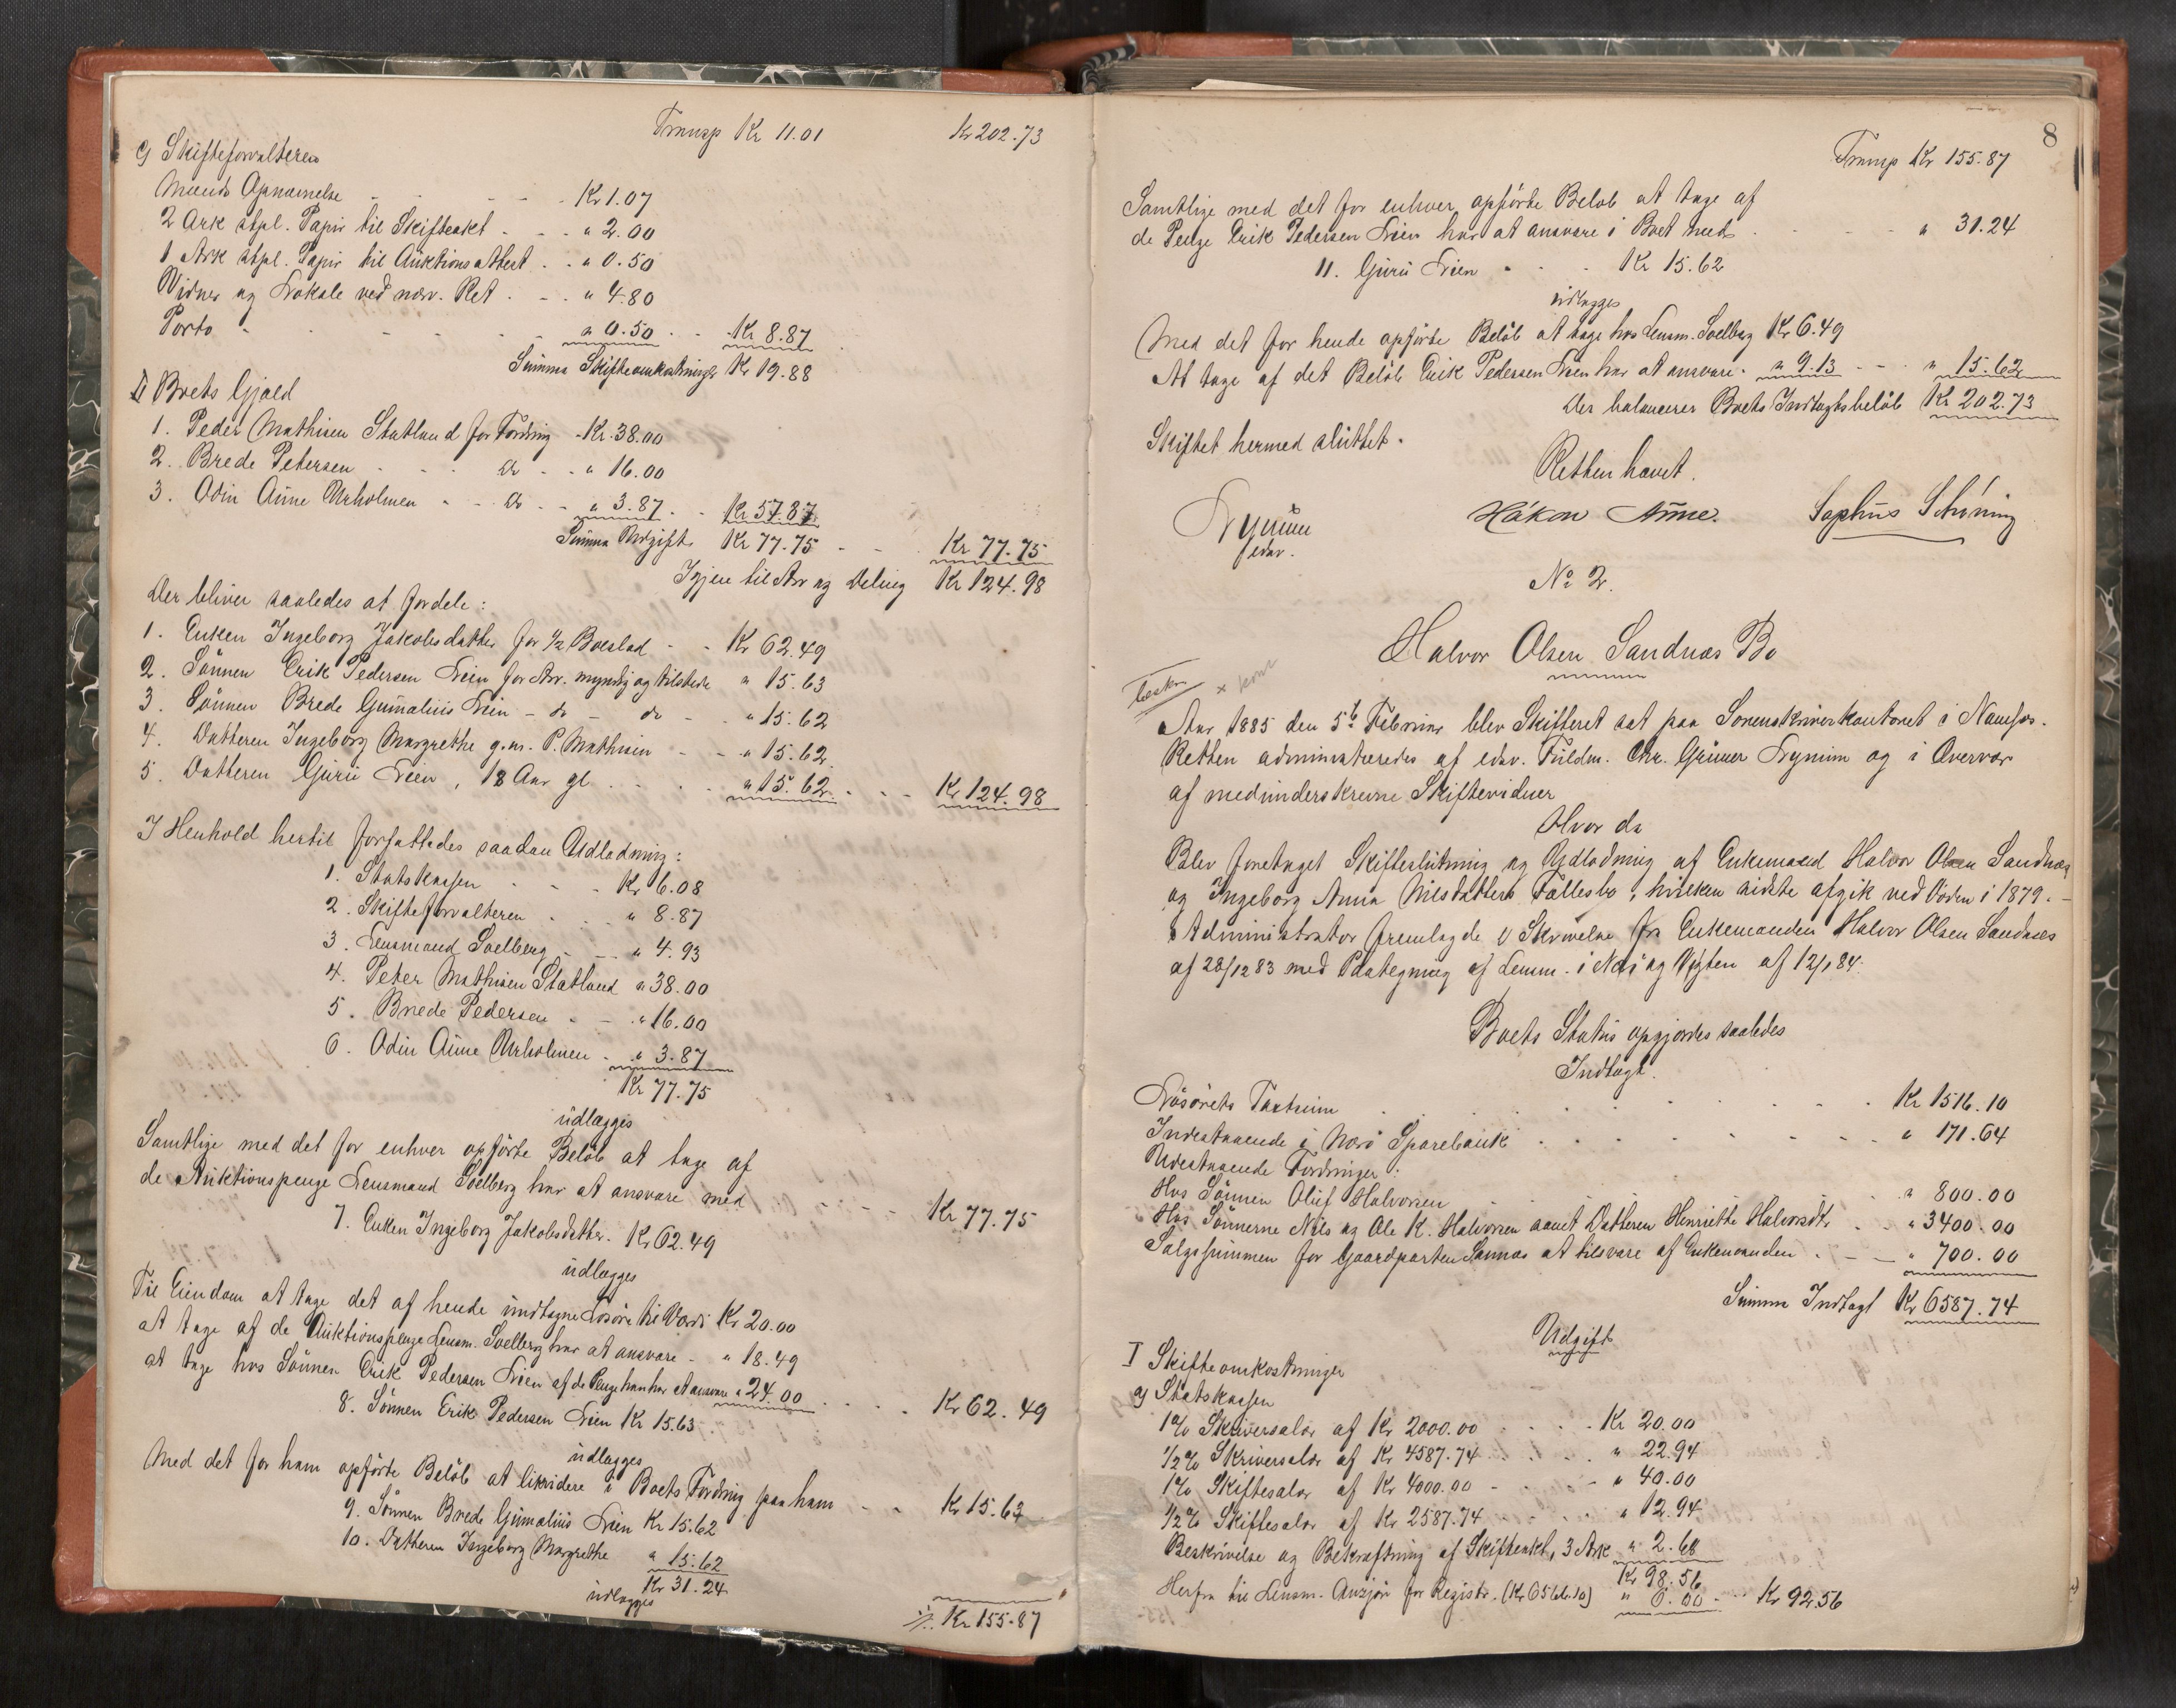 Transp Kr 11.01 Kr 202.73
c) Skifteforvalteren
Mænds Opnævnelse - - - Kr 1.07
2 Ark stpl. Papir til Skifteakt - - " 2.00
1 Ark stpl. Papir til Auktionsattest - " 0.50
Vidner og Lokale ved nærv. Ret - - " 4.80
Porto - - - " 0.50 - - Kr 8.87
Summa Skifteomkostninger Kr 19.88
II Boets Gjæld
1. Peder Mathisen Statland for Fordring - Kr. 38.00
2. Brede Petersen - - do - - " 16.00
3. Odin Aune Urholmen - - do - - " 3.87 - - Kr 57.87
Summa Udgift Kr 77.75 - - Kr 77.75
Igjen til Arv og Deling Kr 124.98
Der bliver saaledes at fordele:
1. Enken Ingeborg Jakobsdatter for 1/2 Boeslod - - Kr 62.49
2. Sønnen Erik Pedersen Lien for Arv. myndig og tilstede " 15.63
3. Sønnen Brede Gumalius Lien - do - do - " 15.62
4. Datteren Ingeborg Margrethe g.m. P. Mathisen - - " 15.62
5. Datteren Guru Lien, 18 Aar gl - - " 15.62 - - Kr 124.98
I Henhold hertil forfattedes saadan Udlodning:
1. Statskassen - - Kr 6.08
2. Skifteforvalteren - - " 8.87
3. Lensmand Soelberg - - " 4.93
4. Peter Mathisen Statland " 38.00
5. Brede Pedersen - - " 16.00
6. Odin Aune Urholmen - " 3.87
Kr 77.75
udlægges
Samtlige med det for enhver opførte Beløb at tage af
de Auktionspenge Lensmand Soelberg har at ansvare med - - Kr 77.75
7. Enken Ingeborg Jakobsdatter. Kr 62.49
udlægges
Til Eiendom at tage det af hende undtagne Løsøre til Værdi Kr 20.00
at tage af de Auktionspenge Lensm. Soelberg har at ansvare - " 18.49
at tage hos Sønnen Erik Pedersen Lien af de Penge han har at ansvare " 24.00 - - Kr 62.49
8. Sønnen Erik Pedersen Lien Kr 15.63
udlægges
Med det for ham opførte Beløb at likvidere i Boets Fordring paa ham - - Kr 15.63
9. Sønnen Brede Gumalius Lien Kr 15.62
10. Datteren Ingeborg Margrethe " 15.62
Kr 31.24
udlægges
Kr 155.87
8
Transp Kr 155.87
Samtlige med det for enhver opførte Beløb at tage af
de Penge Erik Pedersen Lien har at ansvare i Boet med - - " 31.24
11. Guru Lien - - Kr 15.62
udlægges
Med det for hende opførte Beløb at tage hos Lensm. Soelberg Kr 6.49
At tage af det Beløb Erik Pedersen Lien har at ansvare - " 9.13 - - " 15.62
Der balancerer Boets Indtægtsbeløb Kr 202.73
Skiftet hermed sluttet.
Retten hævet.
Lynum Håkon Aune. Sophus Schining
edsv.
No 2.
Halvor Olsen Sandnæs Bo
Aar 1885 den 5te Februar blev Skifteret sat paa Sorenskriverkontoret i Namsos.
Retten administreredes af edsv. Fuldm. Chr. Grüner Lynum og i Overvær
af medunderskrevne Skiftevidner
Hvor da
Blev foretaget Skifteslutning og Udlodning af Enkemand Halvor Olsen Sandnæs
og Ingeborg Anna Nilsdatters Fællesbo, hvilken sidste afgik ved Døden i 1879. -
Administrator fremlagde 1) Skrivelse fra Enkemanden Halvor Olsen Sandnæs
af 28/12 83 med Paategning af Lensm. i Nærø og Vigten af 12/1 84.
Boets Status opgjordes saaledes
Indtægt.
Løsørets Taxtsum - - Kr 1516.10
Indestaaende i Nærø Sparebank - - " 171.64
Udestaaende Fordringer:
Hos Sønnen Oluf Halvorsen - - " 800.00
Hos Sønnerne Nils og Ole K. Halvorsen samt Datteren Henriette Halvorsdtr - - " 3400.00
Salgssummen for Gaardparten Sannæs at tilsvare af Enkemanden - - " 700.00
Summa Indtægt Kr 6587.74
Udgift
I Skifteomkostninger
a) Statskassen
1% Skriversalær af Kr 2000.00 - - Kr 20.00
1/2% Skriversalær af Kr 4587.74 - - " 22.94
1% Skiftesalær af Kr 4000.00 - - " 40.00
1/2% Skiftesalær af Kr 2587.74 - - " 12.94
Beskrivelse og Bekræftning af Skifteakt, 3 Ark " 2.68
Kr 98.56
Herfra til Lensm. for Registr. " 6.00 - - Kr 92.56